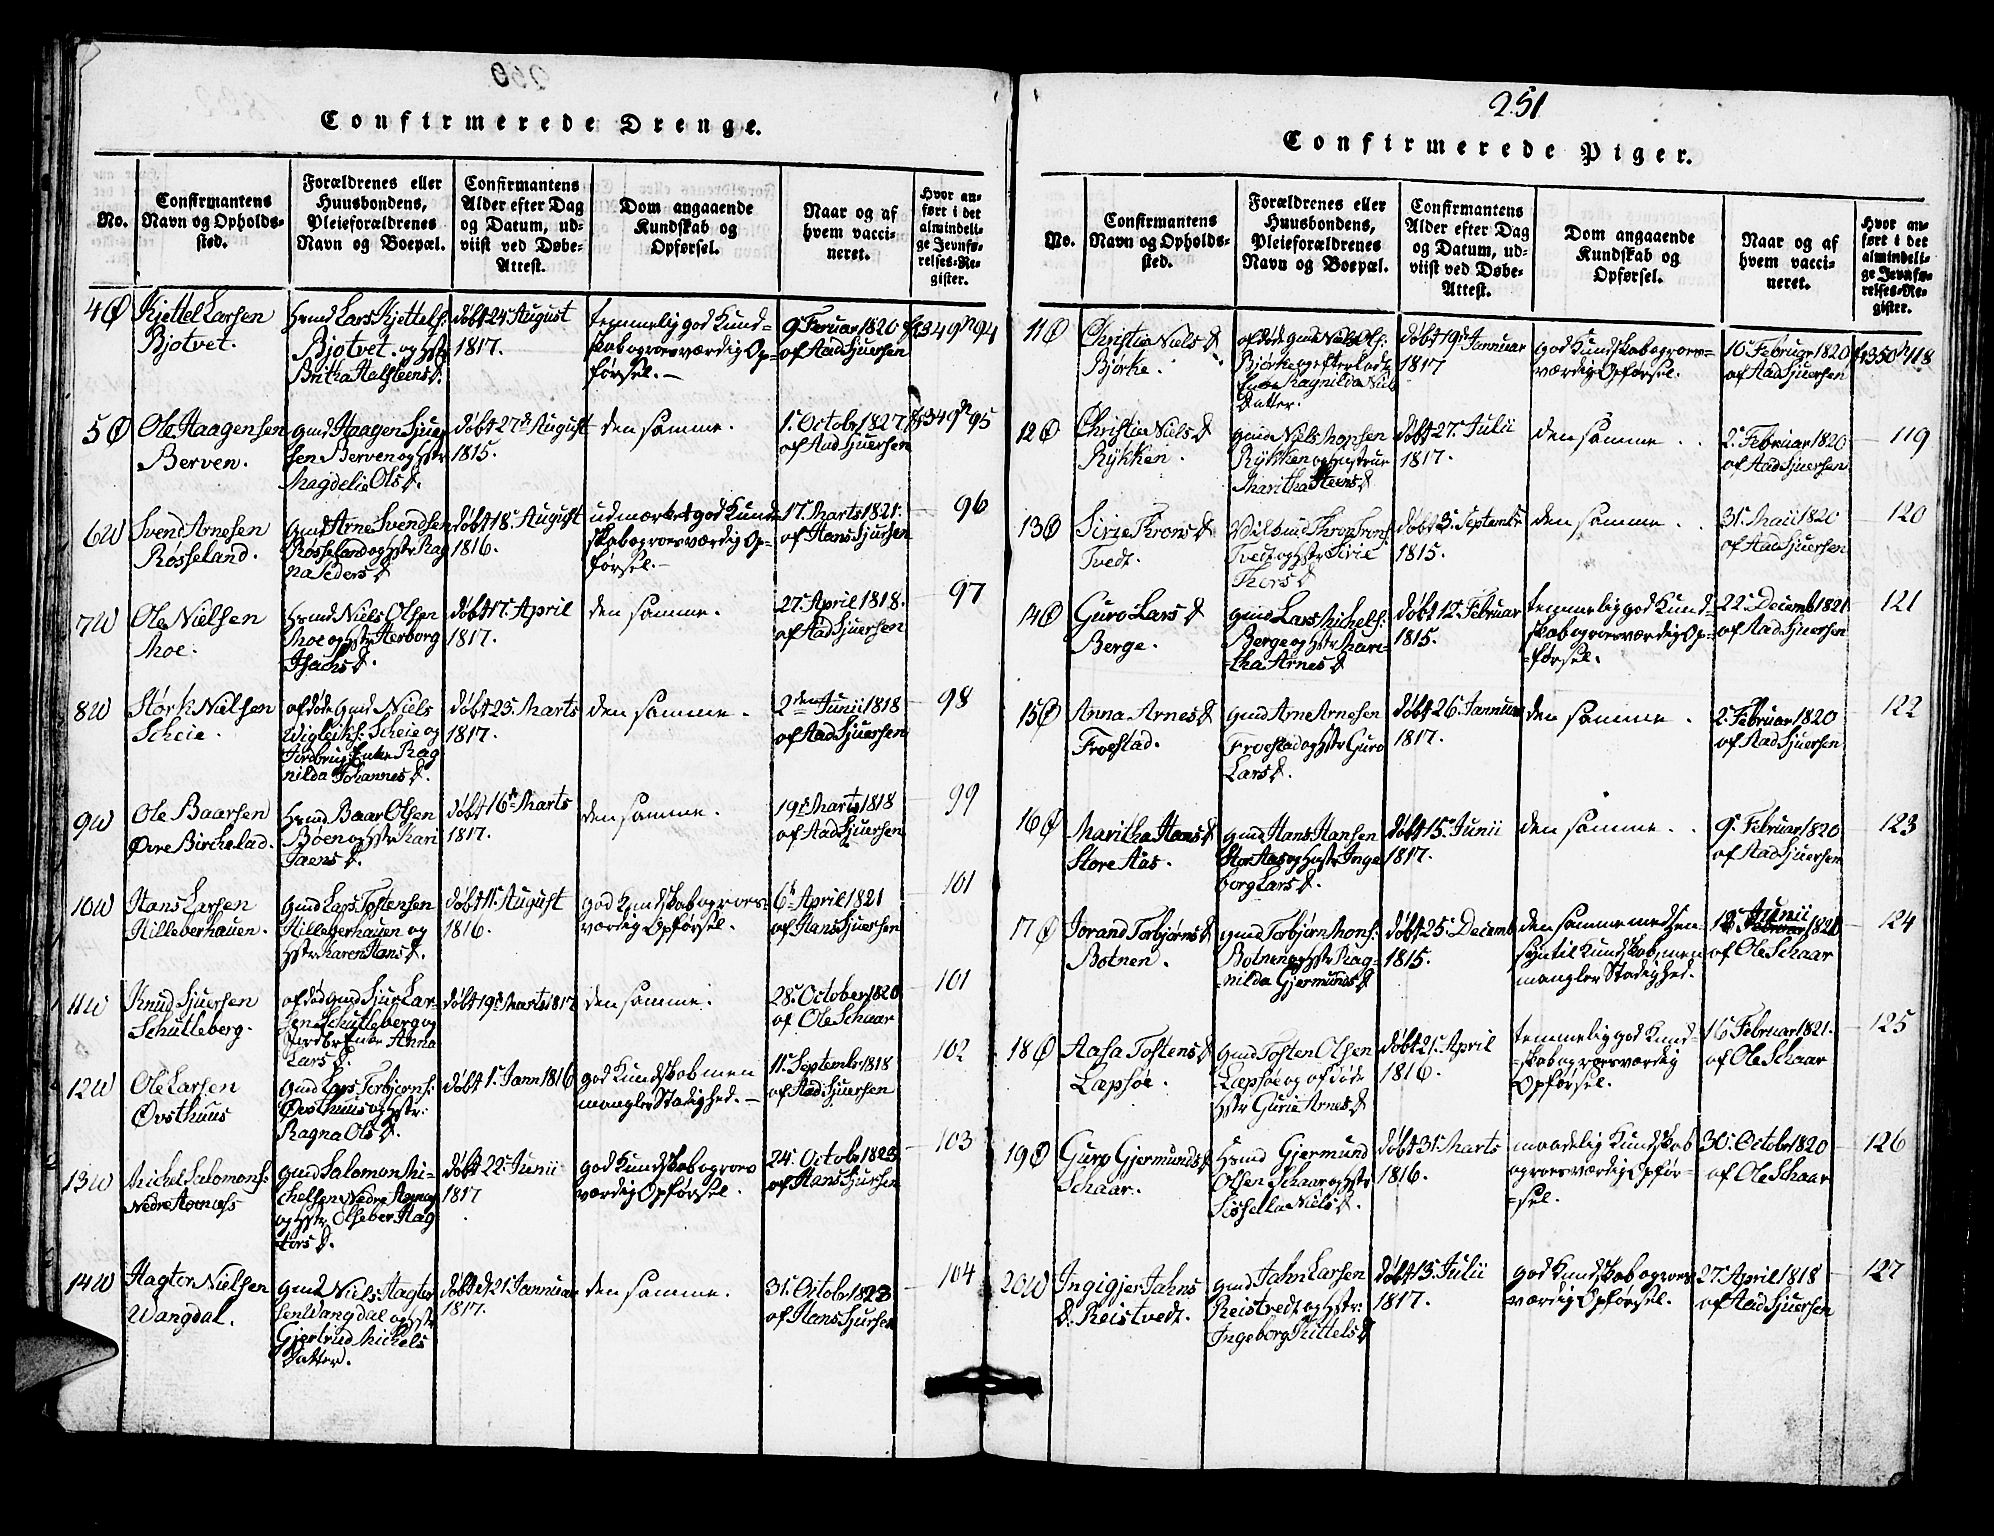 250
Confirmerede Drenge.
No.
Confirmantens
Navn og Opholds-
sted.
Forældrenes eller
Huusbondens,
Pleieforældrenes
Navn og Boepæl.
Confirmantens
Alder efter Dag
og Datum, ud-
viist ved Døbe-
Attest.
Dom angaaende
Kundskab og
Opførsel.
Naar og af
hvem vacci-
neret.
Hvor an-
ført i det
almindeli-
ge Jevnfø-
relses-Re-
gister.
4 Ø
Kjettel Larsen
Bjotvet.
Hmd Lars Kjettels:
Bjotvet. og Hstr
Britha Helsteens D.
døbt 24 August
1817.
temmelig god Kund-
skab og roesværdig Op-
førsel. -
9 Feruar 1820
af Aad Sjuersen
349 n 94
5 Ø
Ole Haagensen
Berven.
Gmd Haagen Sjuer
sen Berven og Hstr
Magdelie Ols D.
døbt 27d August
1815.
den samme.
1. Octobr 1827
af Aad Sjuersen
349 n 95
6 W
Svend Arnesen
Røsseland.
Gmd Arne Svendsen
Rosseland og Hstr Rag
na Peders D
døbt 18. August
1816.
udmærket god Kund
skab og roesværdig Op-
førsel. -
17. Marts 1821.
af Hans Sjursen
96
7 W
Ole Nielsen
Moe.
Hmd Niels Olsen
Moe og Hstr Herborg
Isachs D.
døbt 17. April
1817.
den samme.
27. April 1818.
af Aad Sjuersen
97
8 W
Størk Nielsen
Scheie.
afdøde Gmd Niels
Wigleiks: Scheie og
Jordbrug Enke Rag
nilda Johannes D.
døbt 23. Marts
1817.
den samme.
2den Junii 1818
af Aad Sjuersen
98
9 W
Ole Baarsen
Øvre Birkelad.
Hmd Baar Olsen
Bøen og Hstr Kari
Jaens D.
døbt 16d Marts
1817.
den samme.
19d Marts 1818
af Aad Sjuersen
99
10 W
Hans Larsen
Hilleberhauen.
Gmd Lars Tostensen
Hilleberhauen og
Hstr Karen Hans D.
døbt 11. August
1816.
god Kundskab og roes-
værdig Opførsel.
6d April 1821
af Hans Sjuersen
101
11 W
Knud Sjuersen
Schutleberg.
afdød Gmd Sjur Lar-
sen Schutleberg og
Jordbr Enke Anna
Lars D.
døbt 19d Marts 1817
den samme.
28. October 1820
af Ole Schaar
101
12 W
Ole Larsen
Øvsthuus
Gmd Lars Torbjorns:
Øvsthuus og Hstr:
Ragna Ols D.
døbt 1. Jann 1816
god Kundskab men
mangler Stadighed. -
11. Septembr 1818
af Aad Sjuersen
102
13 W
Mickel Salomons:
Nedre Aarnæs
Gmd Salomon Mi-
chelsen Nedre Aarnæs
og Hstr Olseber Hag
tors D.
døbt 22. Junii
1817
god Kundskab og roes
værdig Opførsel.
24. Octobr 1823
af Hans Sjursen
103
14 W
Hagtor Nielsen
Wangdal.
Gmd Niels Hagtor
sen Wangdal og Hstr
Gjertrud Mickels
Datter.
døbt d 21. Januar
1817.
den samme.
31. Octobr 1823
af Hans Sjursen
104
251
Confirmerede Piger.
No.
Confirmantens
Navn og Opholds-
sted.
Forældrenes eller
Huusbondens,
Pleieforældrenes
Navn og Boepæl.
Confirmantens
Alder efter Dag
og Datum, ud-
viist ved Døbe-
Attest.
Dom angaaende
Kundskab og
Opførsel.
Naar og af
hvem vacci-
neret.
Hvor an-
ført i det
almindeli-
ge Jevnfø-
relses-Re-
gister.
11 Ø
Christie Niels D
Bjørke.
afdøde Gmd Niels Ols:
Bjørke og efterladt
Enke Ragnilda Niels
Datter.
døbt 19d Januar
1817
god Kundskab og roes-
værdig Opførsel.
10 Februar 1820
af Aad Sjuersen
350 n 118
12 Ø
Christie Niels D
Rykken.
Gmd Niels Monsen
Rykken og Hustrue
Maritha Steens D
døbt 27. Julii
1817.
den samme.
2. Februar 1820
af Aad Sjuersen
119
13 Ø
Sirie Throns D
Tvedt.
Thron Throns:
Tvedt og Hstr Sirie
Thors D
døbt 3. Septembr
1815.
den samme.
31. Maii 1820
af Aad Sjuersen
120
14 Ø
Guro Lars D
Berge.
Gmd Lars Michels:
Berge og Hstr Mari-
tha Arnes D
døbt 12. Februar
1815.
temmelig god Kund-
skab og roesværdig Op-
førsel.
22. Decemb 1821
af Aad Sjuersen
121
15 Ø
Anna Arnes D
Froestad.
Gmd Arne Arnesen
Froestad og Hstr Guro
Lars D.
døbt 26. Januar
1817.
den samme.
2. Februar 1820
af Aad Sjuersen
122
16 Ø
Maritha Hans D
Store Aas.
Gmd Hans Hansen
Stor Aas og Hstr Inge
borg Lars D.
døbt 15. Junii
1817.
den samme.
9. Februar 1820
af Aad Sjuersen
123
17 Ø
Jorand Torbjørns D
Botnen.
Gmd Torbjørn Mons:
Botnen og Hstr Rag-
nilda Gjermunds D
døbt 25. Decemb
1815.
den samme med hen
syn til Kundskab, men
mangler Stadighed.
Junii
18. Februar 1821
af Ole Schaar
124
18 Ø
Aasa Tostens D
Læpsøe.
Gmd Tosten Olsen
Læpsøe og afdøde
Hstr Gurie Arnes D
døbt 21. April
1816.
temmelig god Kund-
skab og roesværdig
Opførsel.
16 Februar 1821.
af Ole Schaar
125
19 Ø
Guro Gjermunds D
Schaar.
Hmd Gjermund
Olsen Schaar og Hstr
Sissella Niels D.
døbt 31. Marts
1816.
maadelig Kundskab
og roesværdig Opfør-
sel.
30. Octobr 1820
af Ole Schaar
126
20 W
Ingigjer Jahns
D. Reistvedt.
Gmd Jahn Larsen
Reistvedt og Hstr:
Ingeborg Kittels D
døbt 13. Julii
1817.
god Kundskab og roes
værdig Opførsel.
27. April 1818
af Aad Sjuersen
127